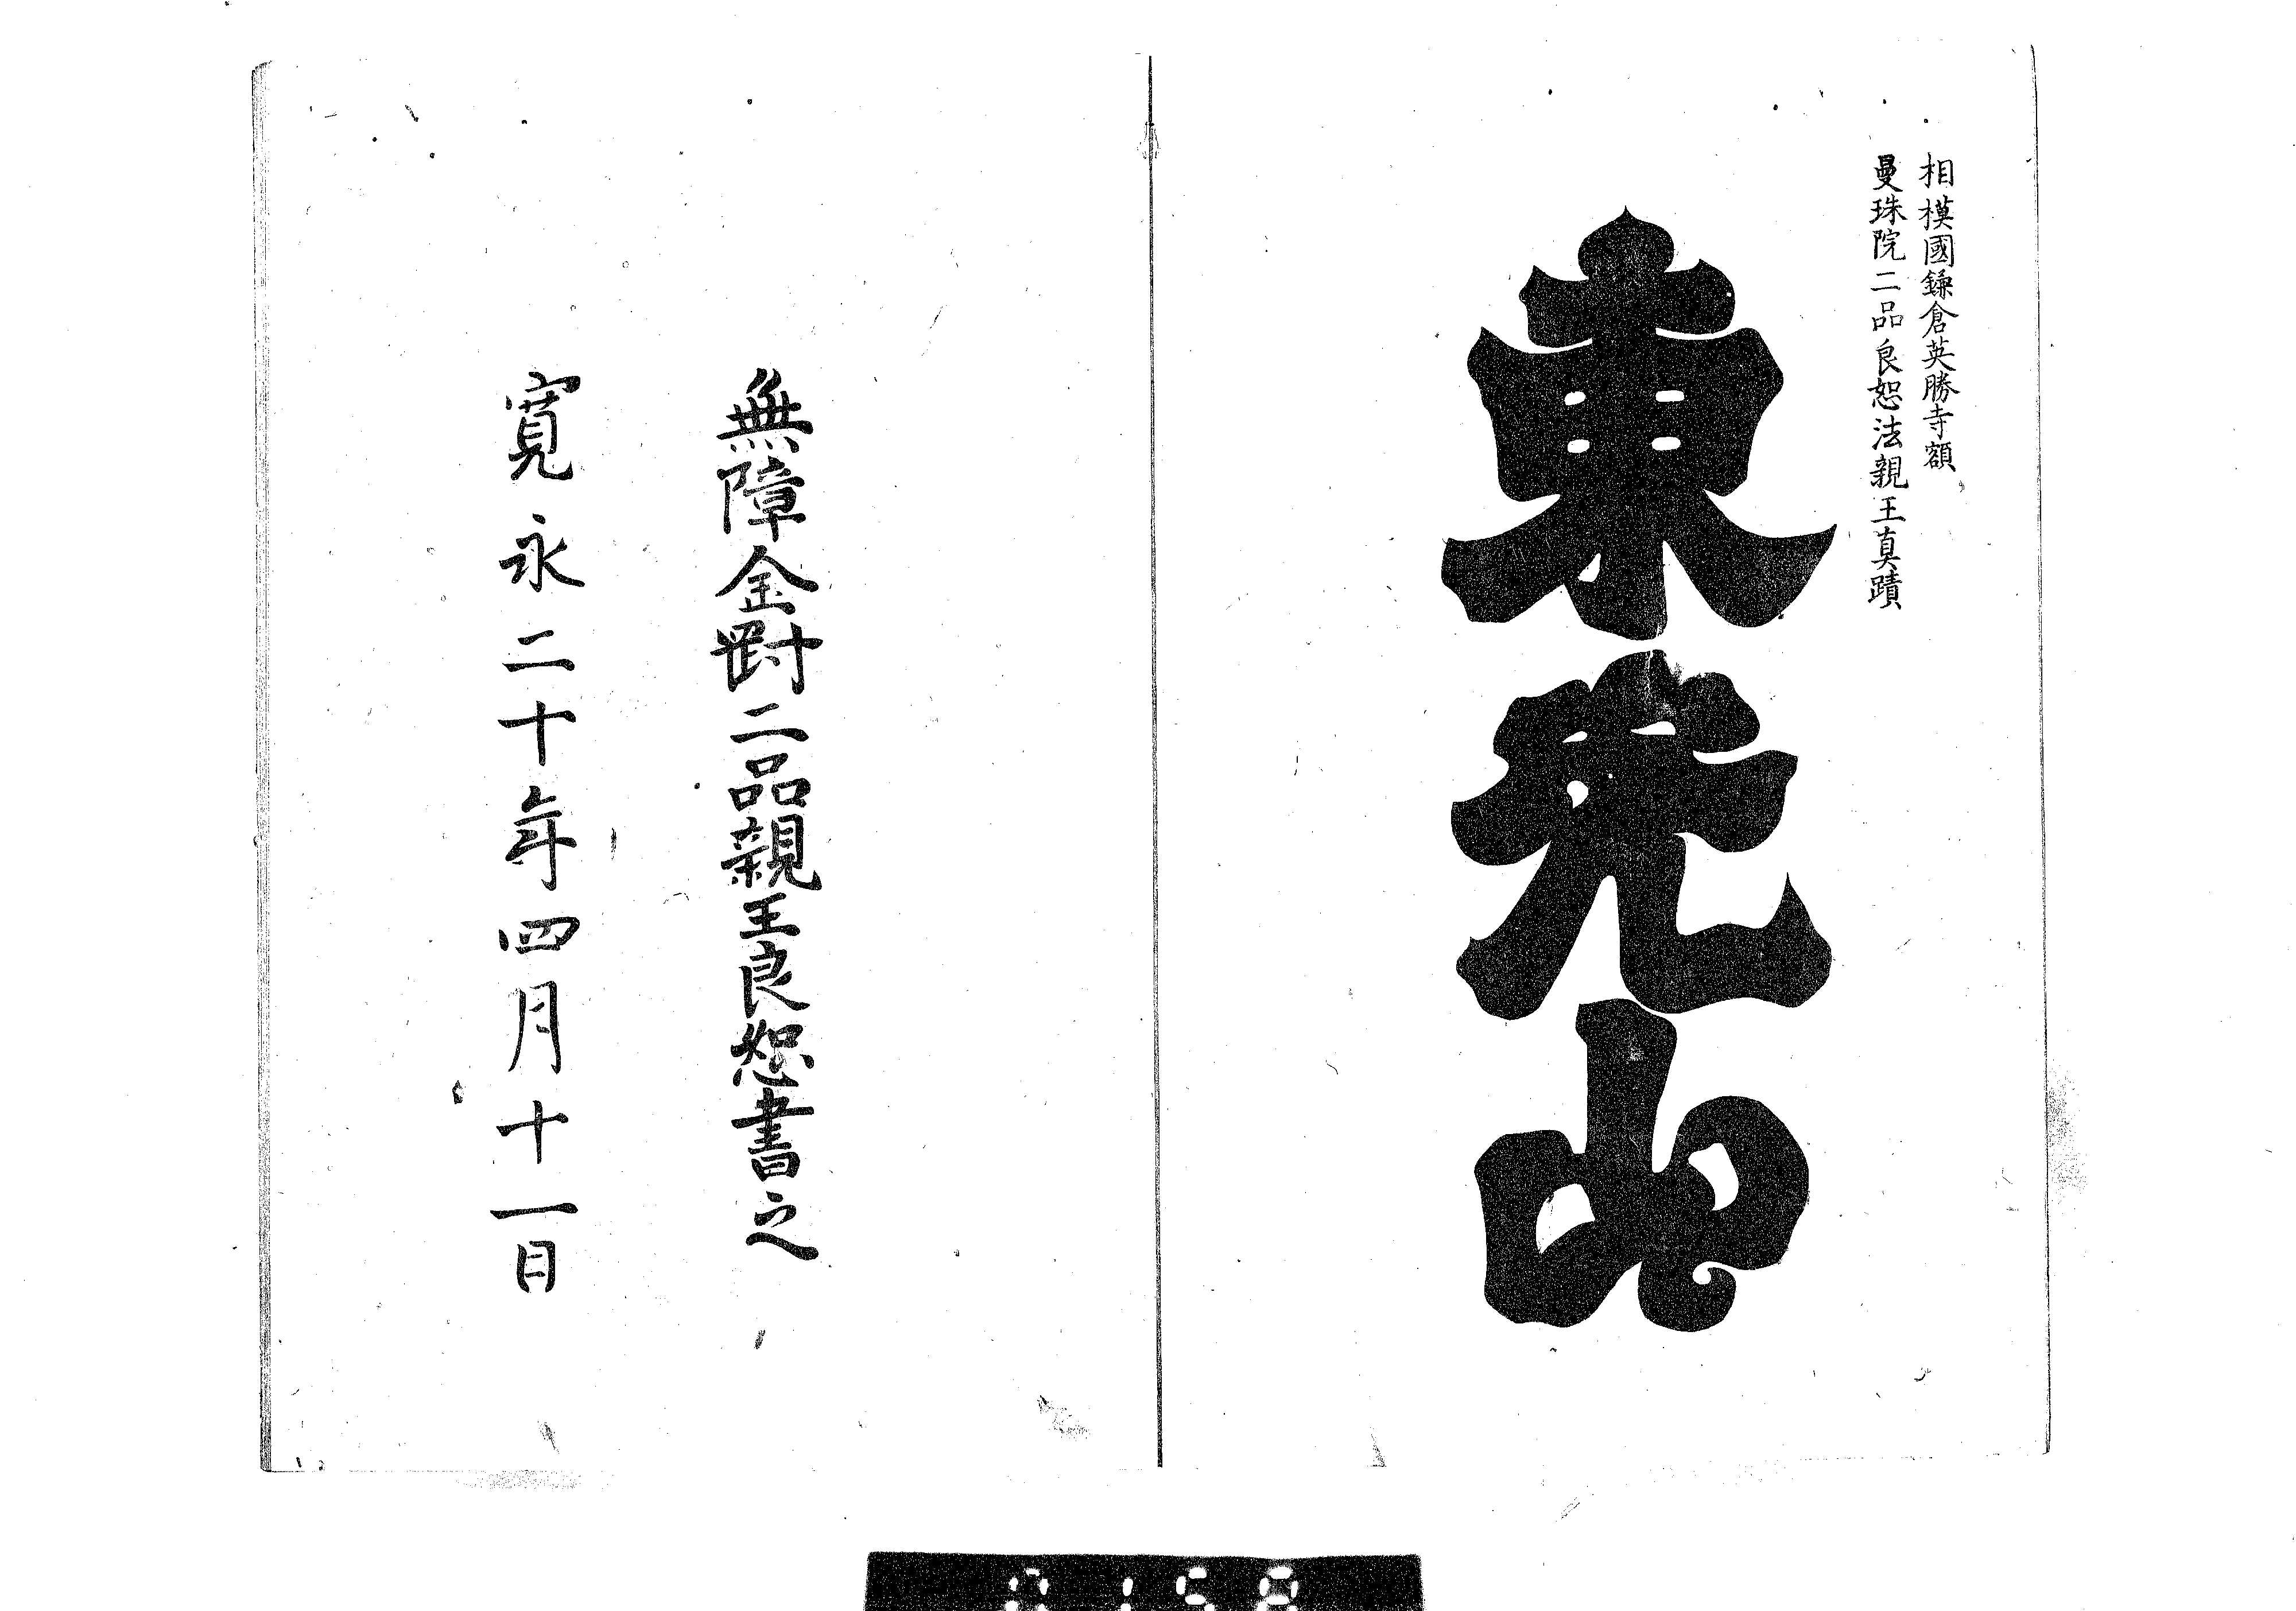 相模國鎌倉英勝寺額
曼珠院二品良恕法親王真蹟
東光山
無障金剛二品親王良恕書之
寛永二十年四月十一日
0158